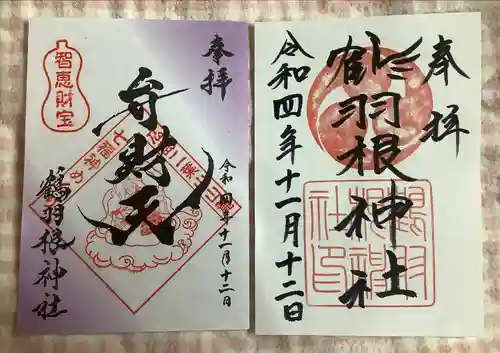 奉拝
令和四年十一月十二日
鶴羽根神社
奉拝
智恵財宝
弁財天
令和四年十一月十二日
鶴羽根神社